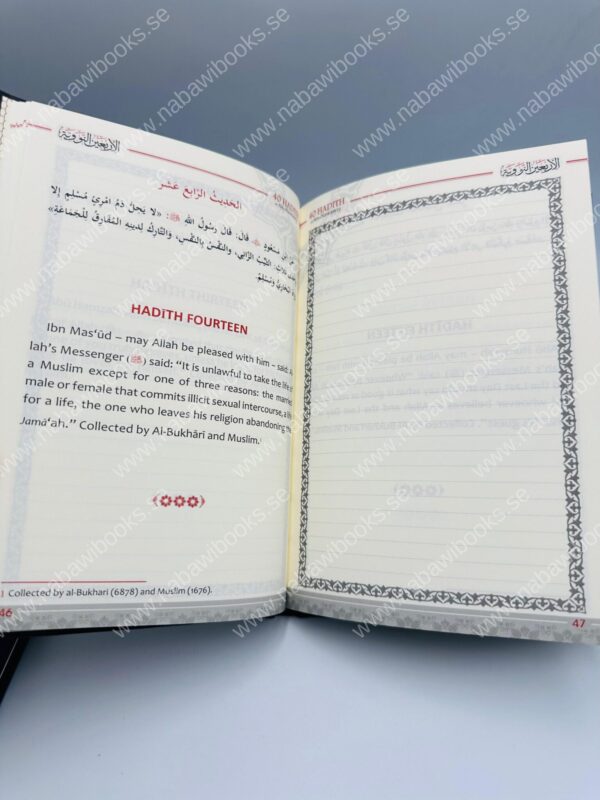 الأربعين النووية
40 HADITH
الحديث الرابع عشر
ابن مسعود ﷺ قال: قال رسول الله ﷺ: «لا يَحِلُّ دَمُ امْرِئٍ مُسْلِمٍ إلا
ثلاث: الثَّيِّبُ الزَّانِي، والنَّفْسُ بِالنَّفْسِ، وَالتَّارِكُ لِدينِهِ المُفَارِقُ لِلْجَمَاعَةِ»
البُخَارِيُّ ومُسْلِمٌ.
HADITH FOURTEEN
Ibn Mas‘ūd – may Allah be pleased with him – said:
lah’s Messenger (ﷺ) said: “It is unlawful to take the life of
a Muslim except for one of three reasons: the married
male or female that commits illicit sexual intercourse, a life
for a life, the one who leaves his religion abandoning the
Jamā‘ah.” Collected by Al-Bukhāri and Muslim.
Collected by al-Bukhari (6878) and Muslim (1676).
46
40 HADITH
الأربعين النووية
47
www.nabawibooks.se